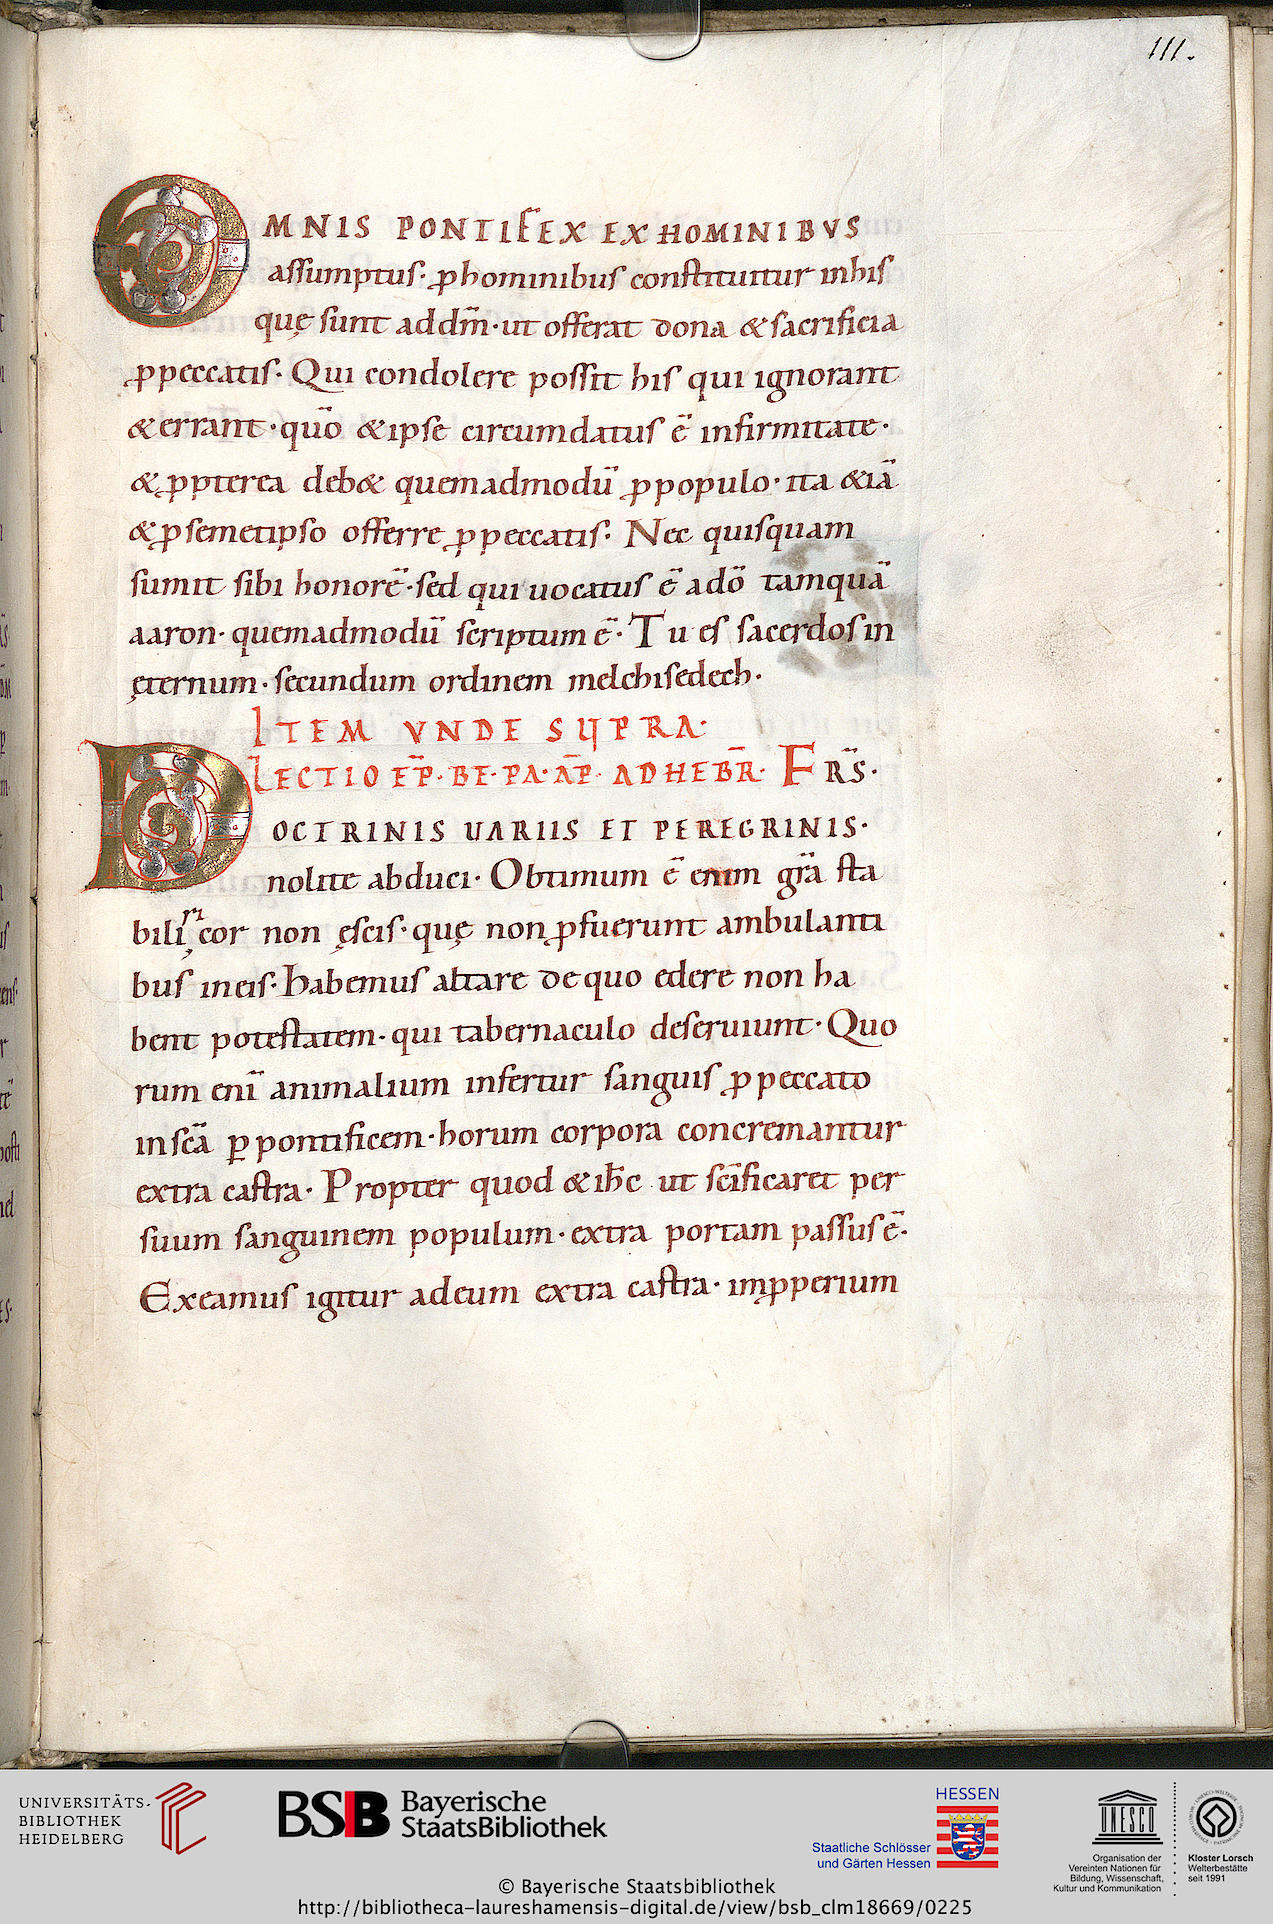 111.
OMNIS PONTIFEX EX HOMINIBVS
assumptus· ꝓ hominibus constituitur in his
quę sunt ad dm̄· ut offerat dona & sacrificia
ꝓ peccatis· Qui condolere possit his qui ignorant
& errant· quō & ipse circumdatus ē infirmitate·
& ꝓpterea deb& quemadmodū ꝓ populo· ita &iā
& ꝓ semetipso offerre ꝓ peccatis· Nec quisquam
sumit sibi honorē· sed qui uocatus ē a dō tamquā
aaron· quemadmodū scriptum ē· Tu es sacerdos in
ęternum· secundum ordinem melchisedech·
ITEM VNDE SUPRA·
LECTIO EP̄· BE· PA· AP̄· AD HEBR̄· FRS̄·
DOCTRINIS UARIIS ET PEREGRINIS·
nolite abduci· Obtimum ē enim grā sta
biliri cor non ęscis· quę non ꝓfuerunt ambulanti
bus in eis· habemus altare de quo edere non ha
bent potestatem· qui tabernaculo deseruiunt· Quo
rum enī animalium infertur sanguis ꝓ peccato
in scā ꝑ pontificem· horum corpora concremantur
extra castra· Propter quod & ihc̄ ut scīficaret per
suum sanguinem populum· extra portam passus ē·
Exeamus igitur ad eum extra castra· imꝓperium
UNIVERSITÄTS-
BIBLIOTHEK
HEIDELBERG
BSB Bayerische
StaatsBibliothek
HESSEN
Staatliche Schlösser
und Gärten Hessen
UNESCO
Organisation der
Vereinten Nationen für
Bildung, Wissenschaft,
Kultur und Kommunikation
Kloster Lorsch
Welterbestätte
seit 1991
© Bayerische Staatsbibliothek
http://bibliotheca-laureshamensis-digital.de/view/bsb_clm18669/0225